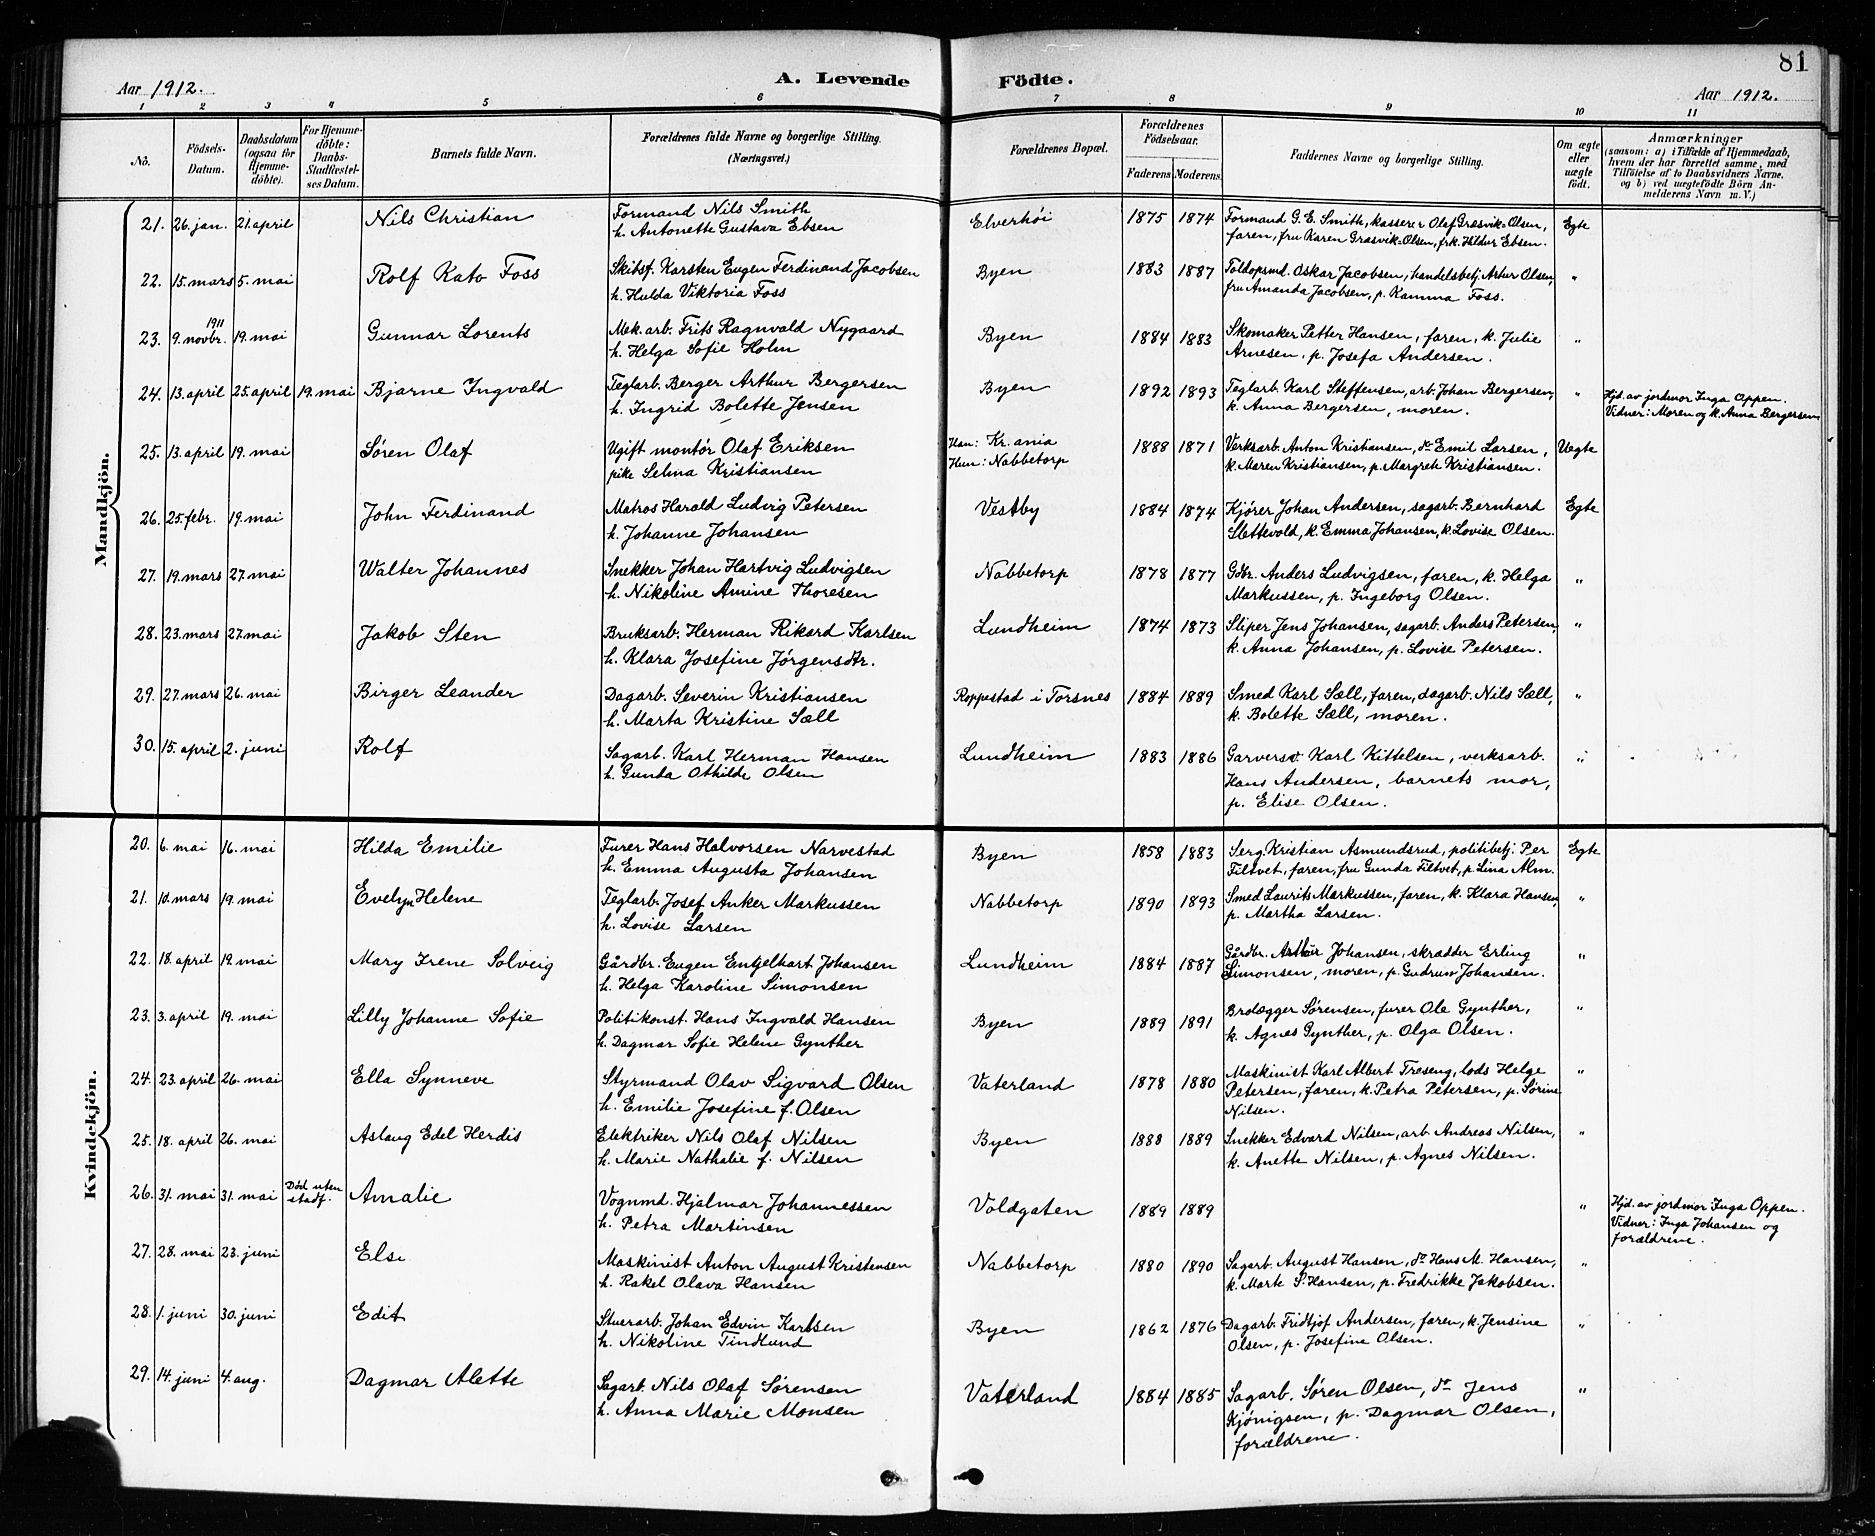 81
Aar 1912.
A. Levende Födte.
Aar 1912.
1 2 3 4 5 6 7 8 9 10 11
No.
Födsels-Datum.
Daabsdatum (ogsaa for Hjemme-döbte).
For Hjemme-döbte: Daabs-Stadfæstel-ses Datum.
Barnets fulde Navn.
Forældrenes fulde Navne og borgerlige Stilling.
(Næringsvei.)
Forældrenes Bopæl.
Forældrenes Födselsaar.
Faderens Moderens
Faddernes Navne og borgerlige Stilling.
Om ægte eller uægte födt.
Anmærkninger
(saasom: a) i Tilfælde af Hjemmedaab, hvem der har forrettet samme, med Tilföielse af to Daabsvidners Navne. og b) ved uægtefödte Börn An-melderens Navn m. V.)
Mandkjön.
21. 26. jan. 21. april Nils Christian Formand Nils Smith Elverhöi 1875 1874 Formand G. E. Smith, kasserer Olaf Græsvik-Olsen, Egte
h. Antonette Gustava Ebsen faren, fru Karen Græsvik-Olsen, frk. Hildur Ebsen.
22. 15. mars 5. mai Rolf Kato Foss Skibsf. Karsten Eugen Ferdinand Jacobsen Byen 1883 1887 Toldopsmd. Oskar Jacobsen, handelsbetj. Artur Olsen, "
h. Hulda Viktoria Foss fru Amanda Jacobsen, p. Kamma Foss.
1911
23. 9. novbr. 19. mai Gunnar Lorents Mek. arb. Frits Ragnvald Nygaard Byen 1884 1883 Skomaker Petter Hansen, faren, k. Julie "
h. Helga Sofie Holm Arnesen, p. Josefa Andersen.
24. 13. april 25. april 19. mai Bjarne Ingvald Teglarb. Berger Arthur Bergersen Byen 1892 1893 Teglarb. Karl Steffensen, arb. Johan Bergersen, " Hjd. av jordmor Inga Oppen.
h. Ingrid Bolette Jensen k. Anna Bergersen, moren. Vidner: Moren og k. Anna Bergersen
25. 13. april 19. mai Sören Olaf Ugift montör Olaf Eriksen Han: Kr.ania 1888 1871 Verksarb. Anton Kristiansen, do Emil Larsen, Uegte
pike Selma Kristiansen Hun: Nabbetorp k. Maren Kristiansen, p. Margrete Kristiansen.
26. 25. febr. 19. mai John Ferdinand Matros Harald Ludvig Petersen Vestby 1884 1874 Kjörer Johan Andersen, sagarb. Bernhard Egte
h. Johanne Johansen Slettevold, k. Emma Johansen, k. Lovise Olsen.
27. 19. mars 27. mai Walter Johannes Snekker Johan Hartvig Ludvigsen Nabbetorp 1878 1877 Gdbr. Anders Ludvigsen, faren, k. Helga "
h. Nikoline Amine Thoresen Markussen, p. Ingeborg Olsen.
28. 23. mars 27. mai Jakob Sten Bruksarb. Herman Rikard Karlsen Lundheim 1874 1873 Sliper Jens Johansen, sagarb. Anders Petersen, "
h. Klara Josefine Jörgensdtr. k. Anna Johansen, p. Lovise Petersen.
29. 27. mars 26. mai Birger Leander Dagarb. Severin Kristiansen Roppestad i Torsnes 1884 1889 Smed Karl Sæll, faren, dagarb. Nils Sæll, "
h. Marta Kristine Sæll k. Bolette Sæll, moren.
30. 15. april 2. juni Rolf Sagarb. Karl Herman Hansen Lundheim 1883 1886 Garversv. Karl Kittelsen, verksarb. "
h. Gunda Othilde Olsen Hans Andersen, barnets mor,
p. Elise Olsen.
Kvindekjön.
20. 6. mai 16. mai Hilda Emilie Furer Hans Halvorsen Narvestad Byen 1858 1883 Serg. Kristian Asmundsrud, politibetj. Per Egte
h. Emma Augusta Johansen Filtvet, faren, fru Gunda Filtvet, p. Lina Alm.
21. 10. mars 19. mai Evelyn Helene Teglarb. Josef Anker Markussen Nabbetorp 1890 1893 Smed Laurits Markussen, faren, k. Klara Hansen, "
h. Lovise Larsen p. Martha Larsen.
22. 18. april 19. mai Mary Irene Solveig Gårdbr. Eugen Engelhart Johansen Lundheim 1884 1887 Gårdbr. Arthur Johansen, skrædder Erling "
h. Helga Karoline Simonsen Simonsen, moren, p. Gudrun Johansen.
23. 3. april 19. mai Lilly Johanne Sofie Politikonst. Hans Ingvald Hansen Byen 1889 1891 Brolægger Sörensen, furer Ole Gynther, "
h. Dagmar Sofie Helene Gynther k. Agnes Gynther, p. Olga Olsen.
24. 23. april 26. mai Ella Synneve Styrmand Olav Sigvard Olsen Vaterland 1878 1880 Maskinist Karl Albert Treseng, lods Helge "
h. Emilie Josefine f. Olsen Petersen, faren, k. Petra Petersen, p. Sörine
Nilsen.
25. 18. april 26. mai Aslaug Edel Herdis Elektriker Nils Olaf Nilsen Byen 1888 1889 Snekker Edvard Nilsen, arb. Andreas Nilsen, "
h. Marie Nathalie f. Nilsen k. Anette Nilsen, p. Agnes Nilsen.
26. 31. mai 31. mai Död uten stadf. Amalie Vognmd. Hjalmar Johannessen Voldgaten 1889 1889 " Hjd. av jordmor Inga Oppen.
h. Petra Martinsen Vidner: Inga Johansen og
forældrene.
27. 28. mai 23. juni Else Maskinist Anton August Kristensen Nabbetorp 1880 1890 Sagarb. August Hansen, do Hans M. Hansen, "
h. Rakel Olava Hansen k. Marte S. Hansen, p. Fredrikke Jakobsen.
28. 1. juni 30. juni Edit Stuerarb. Johan Edvin Karlsen Byen 1862 1876 Dagarb. Fridtjof Andersen, faren, k. Jensine "
h. Nikoline Tindlund Olsen, p. Josefine Olsen.
29. 14. juni 4. aug. Dagmar Alette Sagarb. Nils Olaf Sörensen Vaterland 1884 1885 Sagarb. Sören Olsen, do Jens "
h. Anna Marie Monsen Kjönigsen, p. Dagmar Olsen,
forældrene.